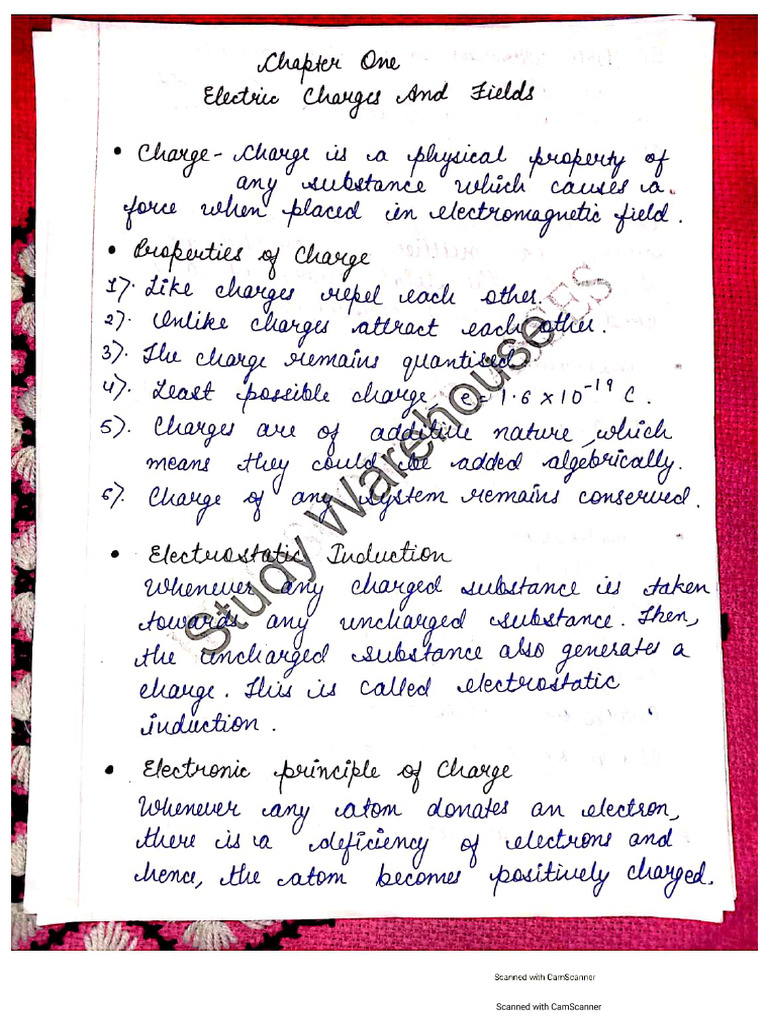 Chapter One
Electric Charges And Fields
• Charge - Charge is a physical property of
any substance which causes a
force when placed in electromagnetic field.
• Properties of Charge
1). Like charges repel each other.
2). Unlike charges attract each other.
3). The charge remains quantised
4). Least possible charge - e = 1.6 × 10⁻¹⁹ C.
5). Charges are of additive nature, which
means they could be added algebrically.
6). Charge of any system remains conserved.
• Electrostatic Induction
Whenever any charged substance is taken
towards any uncharged substance. Then,
the uncharged substance also generates a
charge. This is called electrostatic
induction.
• Electronic principle of Charge
Whenever any atom donates an electron,
there is a deficiency of electrons and
hence, the atom becomes positively charged.
Study Warehouse
Scanned with CamScanner
Scanned with CamScanner